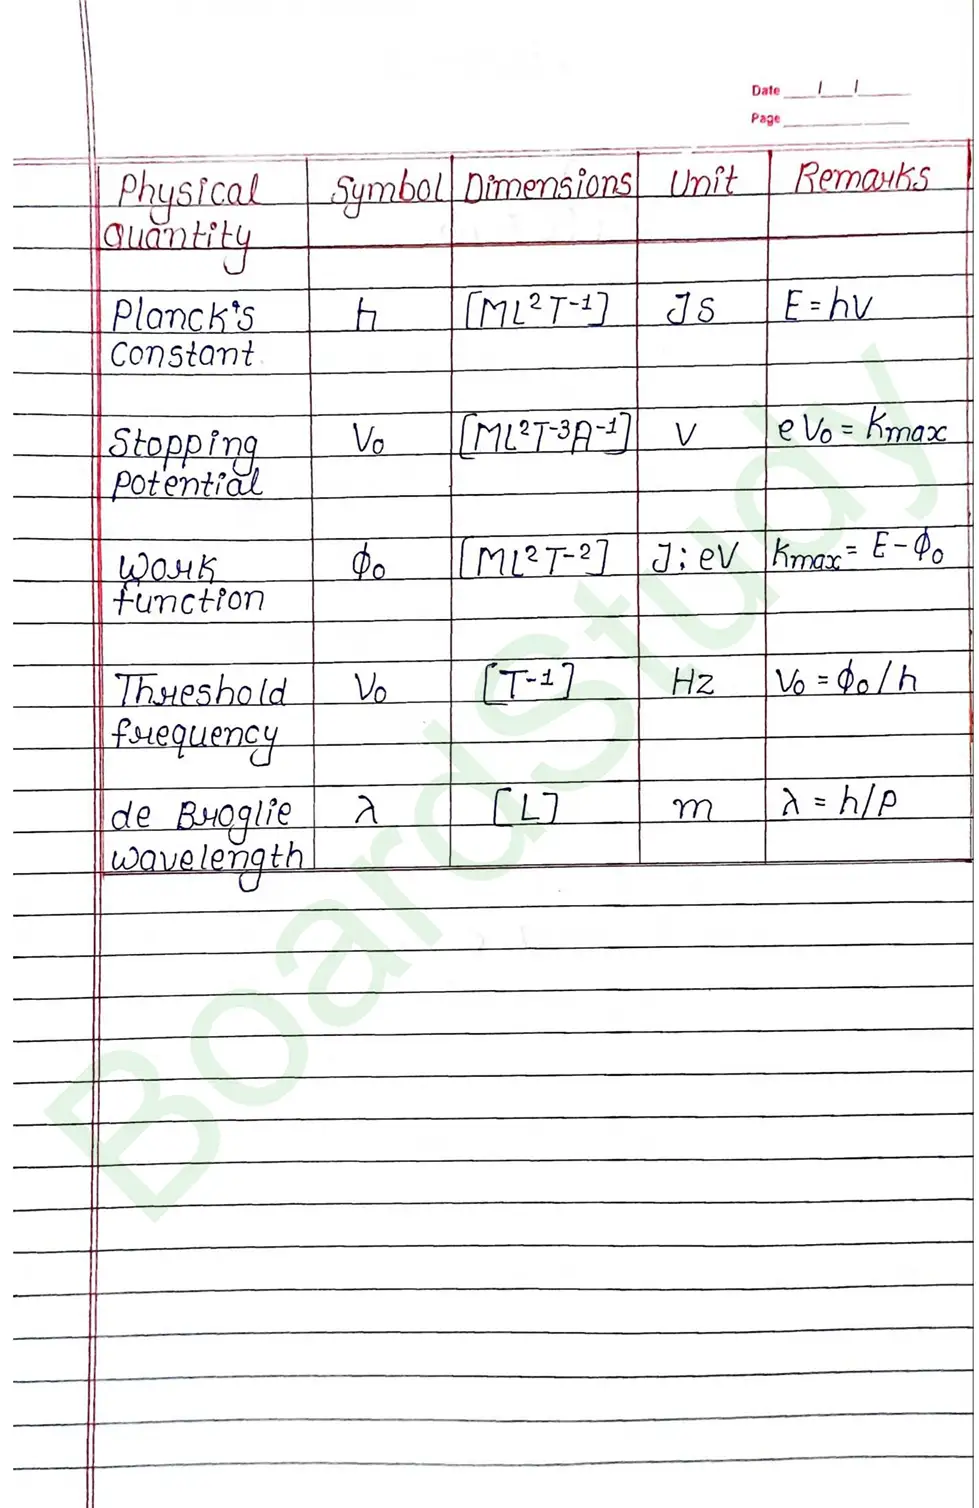 Date ___/___/___
Page ___
Physical Quantity Symbol Dimensions Unit Remarks
Planck's Constant h [ML²T⁻¹] Js E = hν
Stopping Potential V₀ [ML²T⁻³A⁻¹] V eV₀ = Kmax
Work function ϕ₀ [ML²T⁻²] J; eV Kmax = E - ϕ₀
Threshold frequency V₀ [T⁻¹] Hz V₀ = ϕ₀/h
de Broglie wavelength λ [L] m λ = h/p
BoardStudy